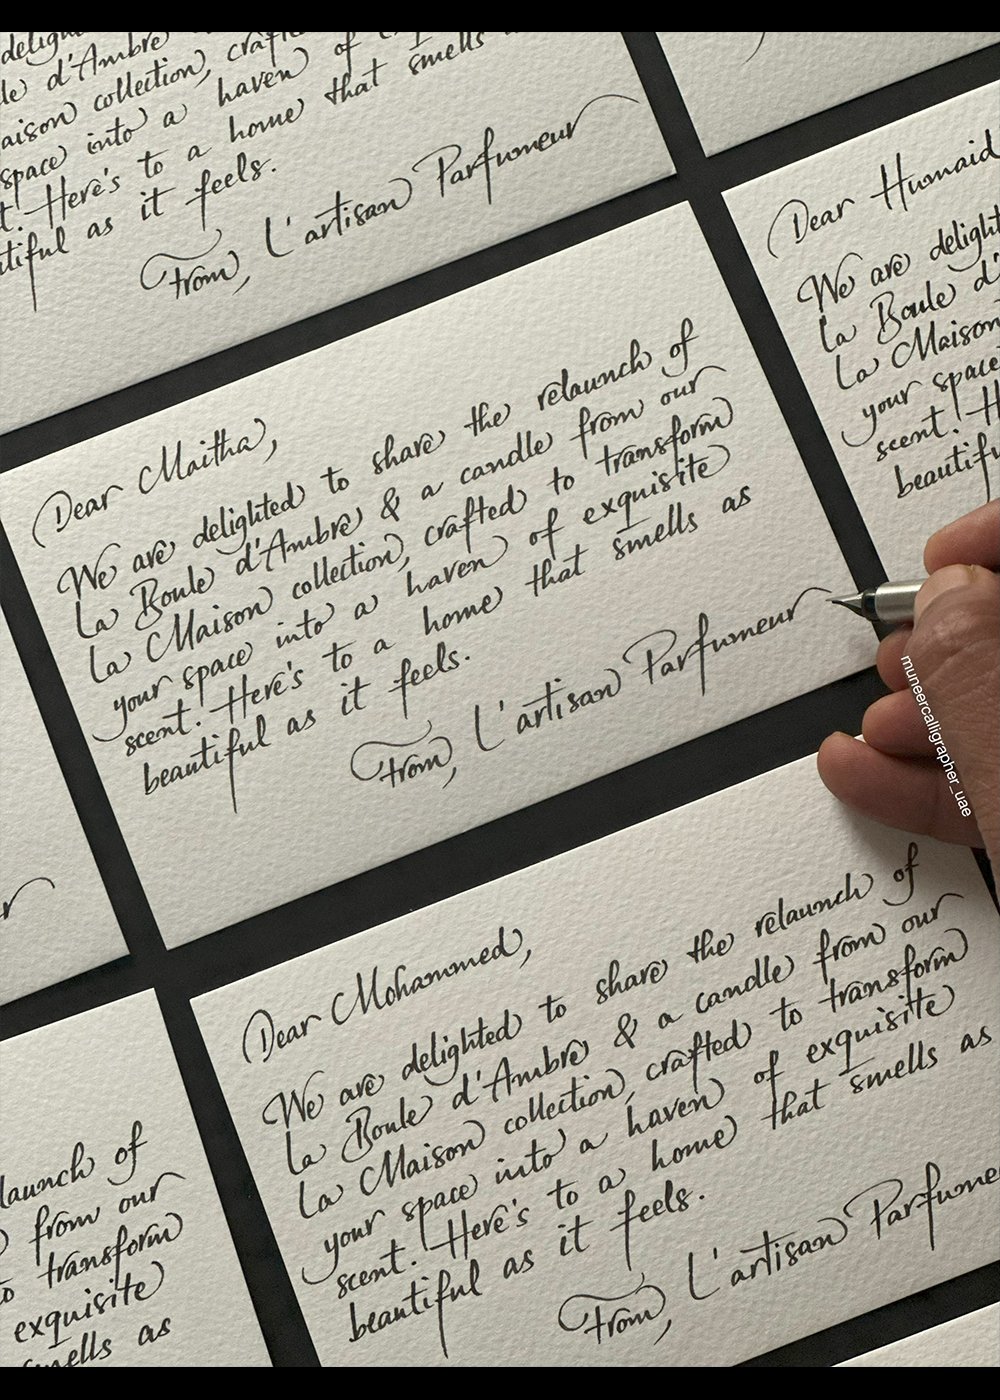 delight
le d'Ambre
aison collection, crafte
space into a haven of
t. Here's to a home that smells
tiful as it feels.
From, L'artisan Parfumeur
Dear Humaid
We are delight
La Boule d'
La Maison
your space
scent. H
beautifu
Dear Maitha,
We are delighted to share the relaunch of
La Boule d'Ambre & a candle from our
La Maison collection, crafted to transform
your space into a haven of exquisite
scent. Here's to a home that smells as
beautiful as it feels.
From, L'artisan Parfumeur
muneercalligrapher_uae
r
Dear Mohammed,
We are delighted to share the relaunch of
La Boule d'Ambre & a candle from our
La Maison collection, crafted to transform
your space into a haven of exquisite
scent. Here's to a home that smells as
beautiful as it feels.
From, L'artisan Parfume
launch of
from our
o transform
exquisite
smells as